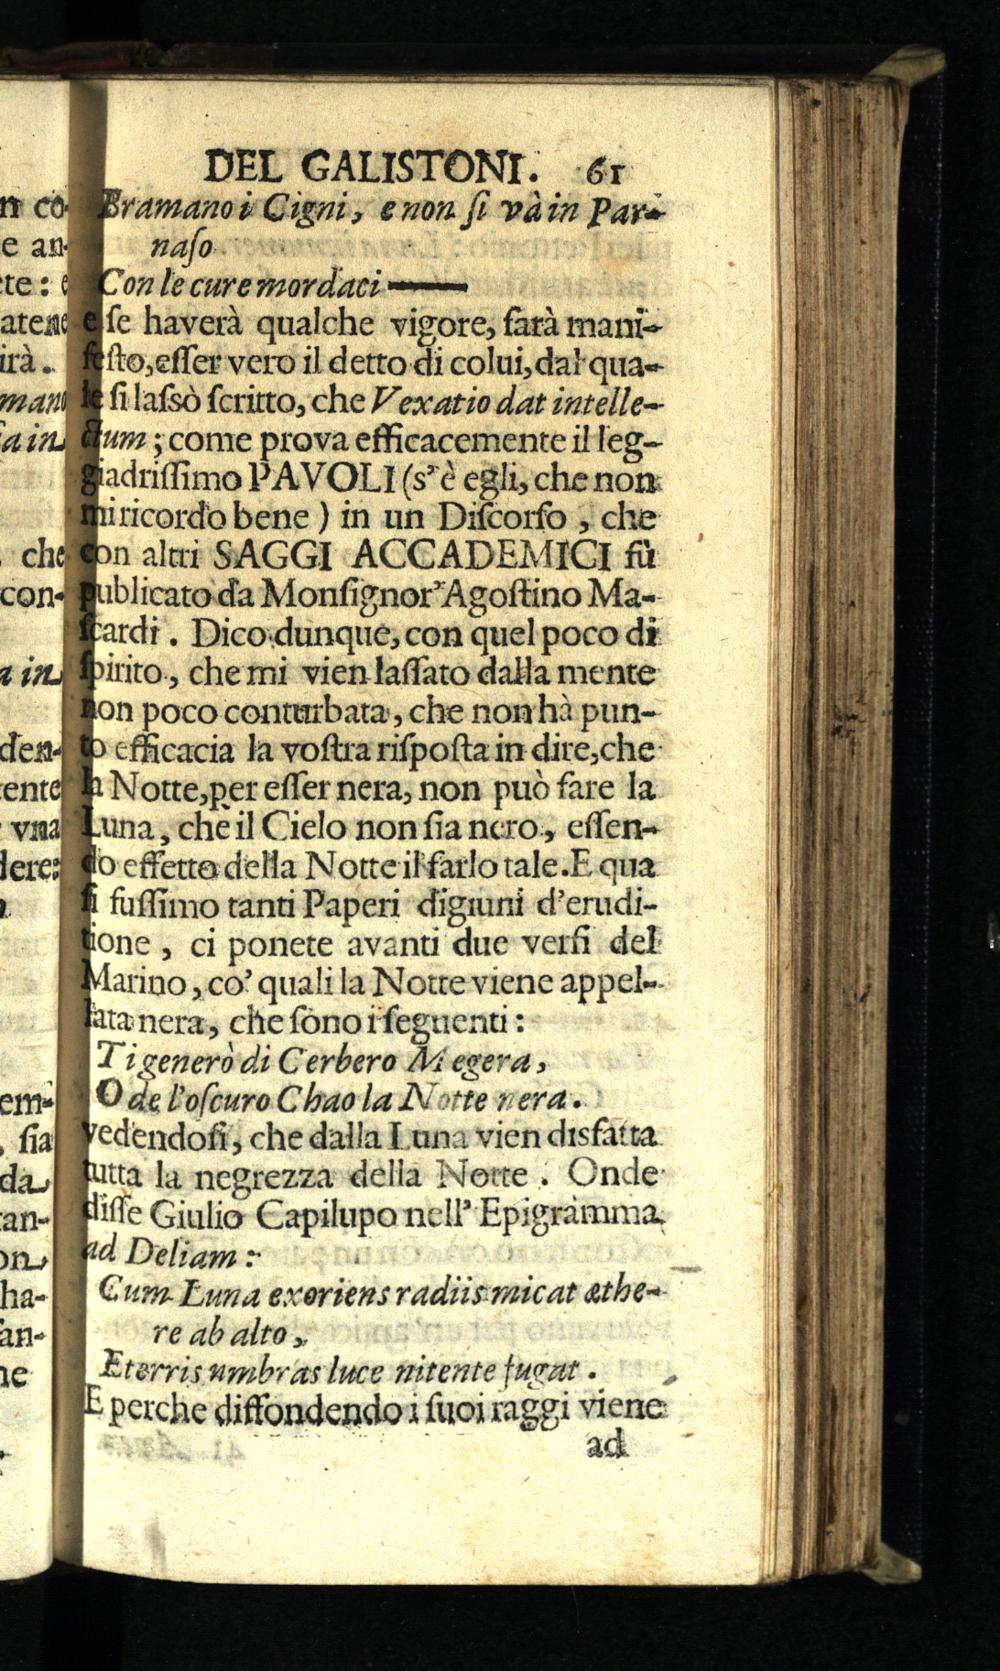 DEL GALISTONI. 61
Bramano i Cigni, e non ſi và in Par-
naſo
Con le cure mordaci ——
e ſe haverà qualche vigore, ſarà mani-
feſto, eſſer vero il detto di colui, dal qua-
le ſi laſsò ſcritto, che Vexatio dat intelle-
ctum; come prova efficacemente il leg-
giadriſſimo PAVOLI (s'è egli, che non
mi ricordo bene) in un Diſcorſo, che
con altri SAGGI ACCADEMICI fù
publicato da Monſignor' Agoſtino Ma-
ſcardi. Dico dunque, con quel poco di
ſpirito, che mi vien laſſato dalla mente
non poco conturbata, che non hà pun-
to efficacia la voſtra riſpoſta in dire, che
la Notte, per eſſer nera, non può fare la
Luna, che il Cielo non ſia nero, eſſen-
do effetto della Notte il farlo tale. E qua
ſi fuſſimo tanti Paperi digiuni d'erudi-
tione, ci ponete avanti due verſi del
Marino, co' quali la Notte viene appel-
lata nera, che ſono i ſeguenti:
Ti generò di Cerbero Megera,
O de l'oſcuro Chao la Notte nera.
vedendoſi, che dalla Luna vien disfatta
tutta la negrezza della Notte. Onde
diſſe Giulio Capilupo nell' Epigràmma
ad Deliam:
Cum Luna exoriens radiis micat æthe-
re ab alto,
Et terris umbras luce nitente fugat.
E perche diffondendo i ſuoi raggi viene
ad
n co-
e an-
ete: e
atene
irà.
man
ſa in
che
con-
a in
den-
cente
vna
dere:
em-
, ſia
da
tan-
on
ha-
ſan-
ne